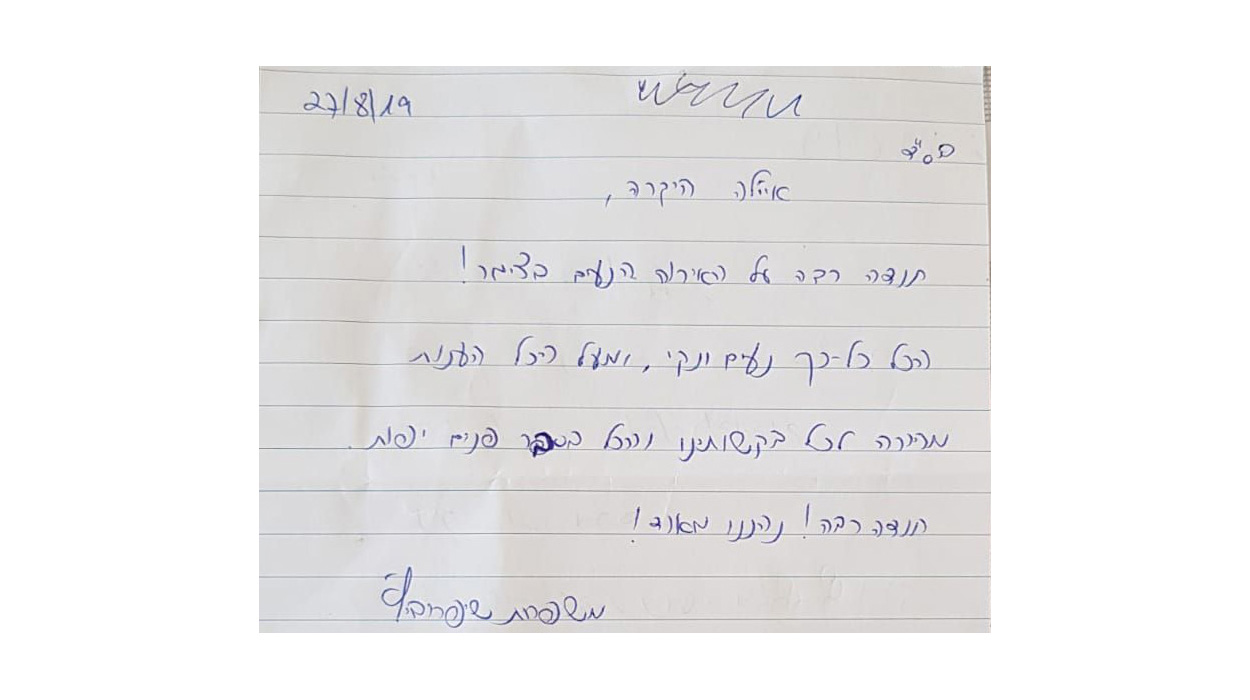 27/8/19
בס"ד
איילה היקרה,
תודה רבה על האירוח הנעים בצימר!
הכל כל-כך נעים ונקי, ומעל הכל הענות
מהירה לכל בקשותינו והכל בסבר פנים יפות.
תודה רבה! נהננו מאוד!
משפחת